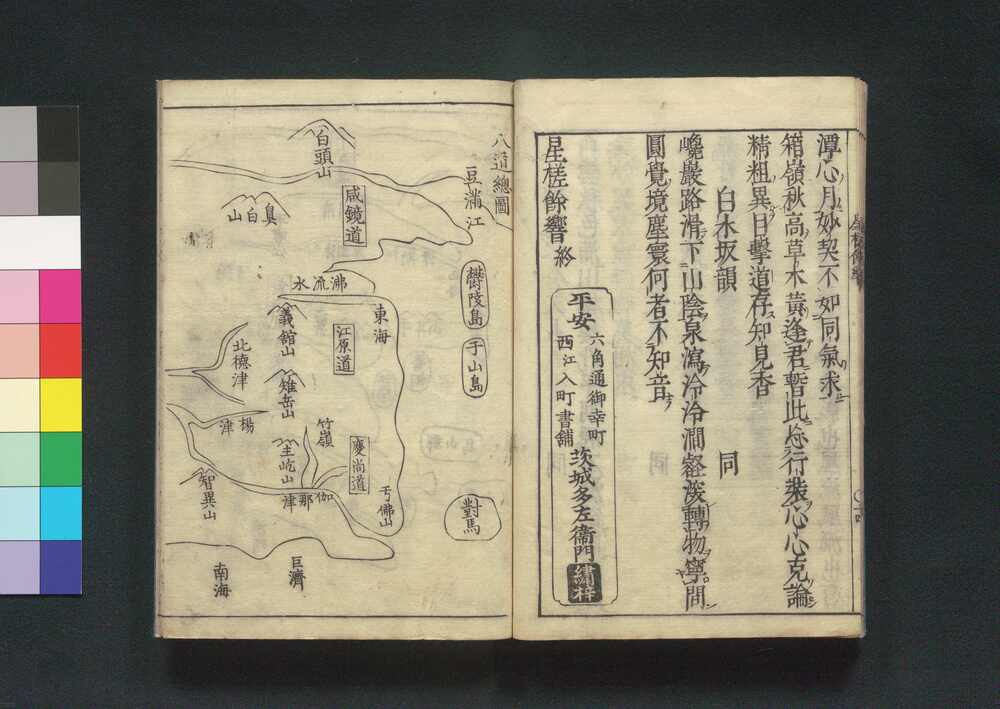 潭心月妙契不如同氣求
箱嶺秋高草木黃逢君暫此怂行裝心心克論
精粗異目擊道存知見香
白水坂韻 同
巉巖路滑下山陰泉瀉泠泠澗壑深轉物寧問
圓覺境塵寰何者不知音
星槎餘響 終
平安
六角通御幸町
西江入町書舖
茨城多左衞門
繡梓
八道總圖
豆滿江
白頭山
咸鏡道
臭白山
沸流水
東海
鬱陵島
于山島
義舘山
江原道
北德津
雉岳山
竹嶺
楊津
慶尚道
主屹山
伽那津
智異山
亐佛山
對馬
巨濟
南海